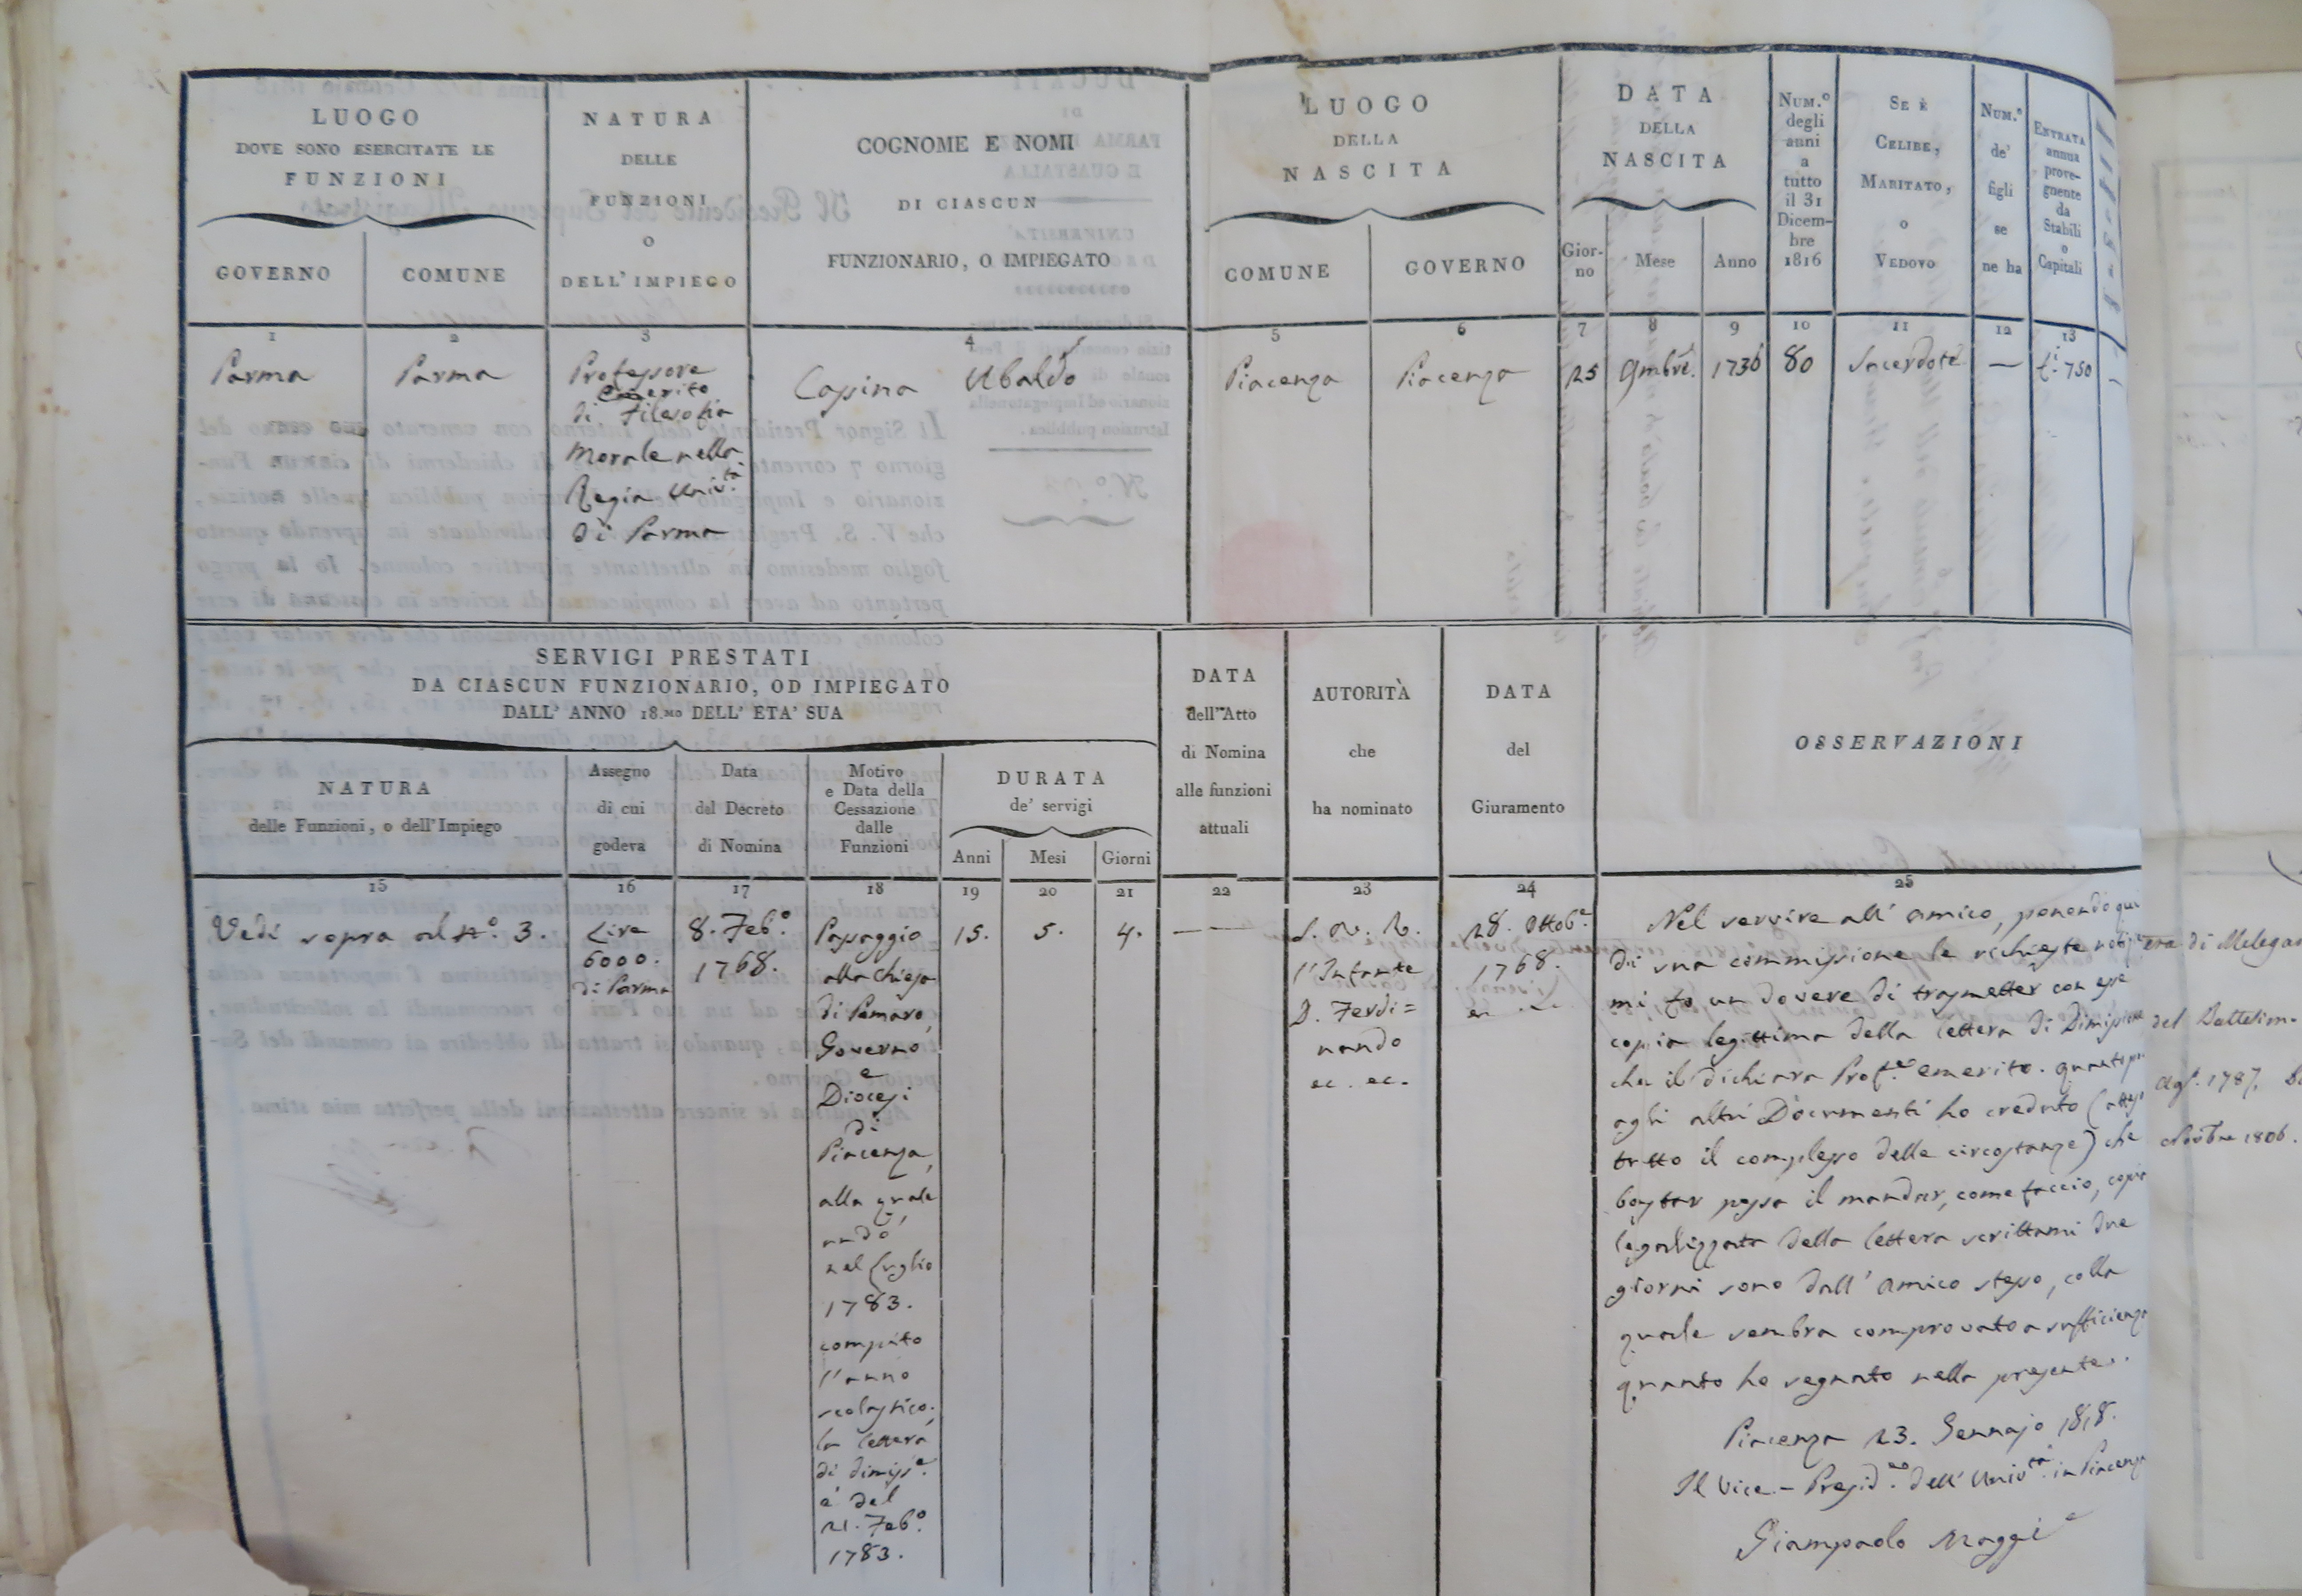 LUOGO
DOVE SONO ESERCITATE LE
FUNZIONI
GOVERNO
COMUNE
NATURA
DELLE
FUNZIONI
O
DELL'IMPIEGO
COGNOME E NOMI
DI CIASCUN
FUNZIONARIO, O IMPIEGATO
LUOGO
DELLA
NASCITA
COMUNE
GOVERNO
DATA
DELLA
NASCITA
Gior-
no
Mese
Anno
Num.º
degli
anni
a
tutto
il 31
Dicem-
bre
1816
Se è
Celibe,
Maritato,
o
Vedovo
Num.º
de'
figli
se
ne ha
Entrata
annua
prove-
gnente
da
Stabili
o
Capitali
1
2
3
4
5
6
7
8
9
10
11
12
13
Parma
Parma
Professore
Emerito
di Filosofia
Morale nella
Regia Univ.tà
di Parma
Casina Ubaldo
Piacenza
Piacenza
25
9mbre.
1736
80
Sacerdote
—
750
SERVIGI PRESTATI
DA CIASCUN FUNZIONARIO, OD IMPIEGATO
DALL' ANNO 18.MO DELL' ETA' SUA
NATURA
delle Funzioni, o dell'Impiego
Assegno
di cui
godeva
Data
del Decreto
di Nomina
Motivo
e Data della
Cessazione
dalle
Funzioni
DURATA
de' servigi
Anni
Mesi
Giorni
DATA
dell'Atto
di Nomina
alle funzioni
attuali
AUTORITÀ
che
ha nominato
DATA
del
Giuramento
OSSERVAZIONI
15
16
17
18
19
20
21
22
23
24
25
Vedi sopra al nº. 3.
Lire
6000.
di Parma
8. Febº.
1768.
Passaggio
alla Chiesa
di Pomaro,
Governo
e
Diocesi
di
Piacenza,
alla quale
andò
nel Luglio
1783.
compiuto
l'anno
scolastico.
la lettera
di dimiss.e
è del
21. Febº.
1783.
15.
5.
4.
— —
S. A. R.
l'Infante
D. Ferdi=
nando
ec. ec.
28. Ottob.e
1768.
Nel servire all' amico, ponendo qui
di sua commissione le richieste notizie
mi fo un dovere di trasmetter con esse
copia legittima della lettera di Dimissione
che il dichiara Prof.re emerito. quanto poi
agli altri Documenti ho creduto (atteso
tutto il complesso delle circostanze) che
bastar possa il mandar, come faccio, copia
legalizzata della lettera scrittami due
giorni sono dall' amico stesso, colla
quale sembra comprovato a sufficienza
quanto ho segnato nella presente.
Piacenza 23. Gennajo 1818.
Il Vice-Presid.e dell' Univ.tà in Piacenza
Giampaolo Maggi
1787.
1806.